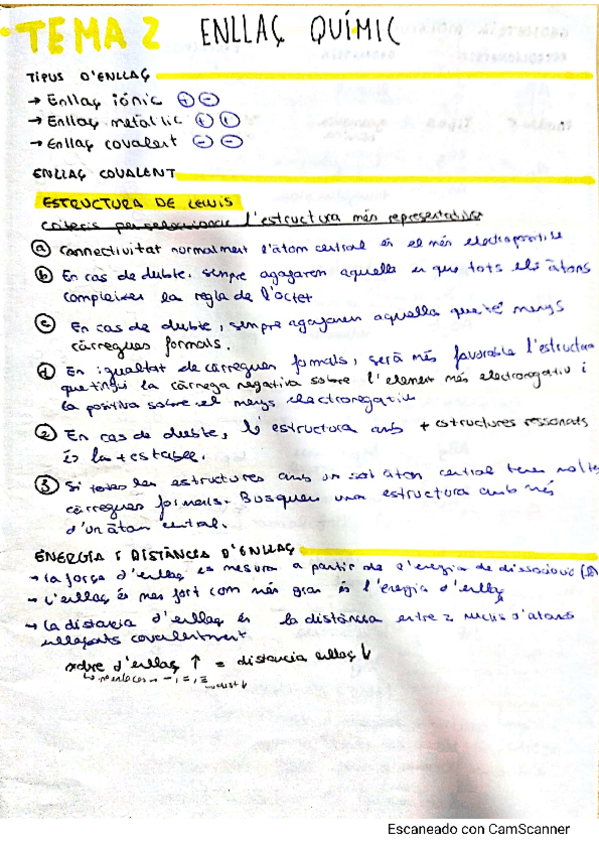 TEMA 2 ENLLAÇ QUÍMIC
TIPUS D'ENLLAÇ
→ Enllaç iónic + -
→ Enllaç metàl·lic + +
→ Enllaç covalent - -
ENLLAÇ COVALENT
ESTRUCTURA DE LEWIS
Criteris per seleccionar l'estructura més representativa
a Connectivitat normalment l'àtom central és el més electropositiu
b En cas de dubte, sempre agafarem aquella en que tots els àtoms
compleixen la regla de l'octet
c En cas de dubte, sempre agafarem aquella que té menys
càrregues formals.
d En igualtat de càrregues formals, serà més favorable l'estructura
que tingui la càrrega negativa sobre l'element més electronegatiu i
la positiva sobre el menys electronegatiu
2 En cas de dubte, l'estructura amb + estructures ressonants
és la + estable.
3 Si totes les estructures amb un sol àtom central tenen moltes
càrregues formals. Busquem una estructura amb més
d'un àtom central.
ENERGÍA I DISTÀNCIA D'ENLLAÇ
→ La força d'enllaç es mesura a partir de l'energia de dissociació
→ L'enllaç és mes fort com més gran és l'energia d'enllaç
→ La distancia d'enllaç és la distància entre 2 nuclis d'atoms
enllaçats covalentment
ordre d'enllaç ↑ = distancia enllaç ↓
↳ nº enlaces → -, =, ≡
Escaneado con CamScanner